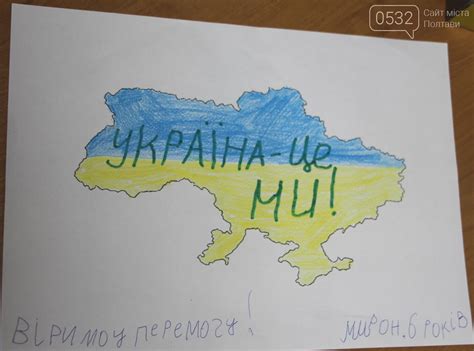 0532
Сайт міста
Полтави
УКРАЇНА-ЦЕ
МИ!
ВІРИМОУ ПЕРЕМОГУ!
МИРОН. 6 РОКІВ